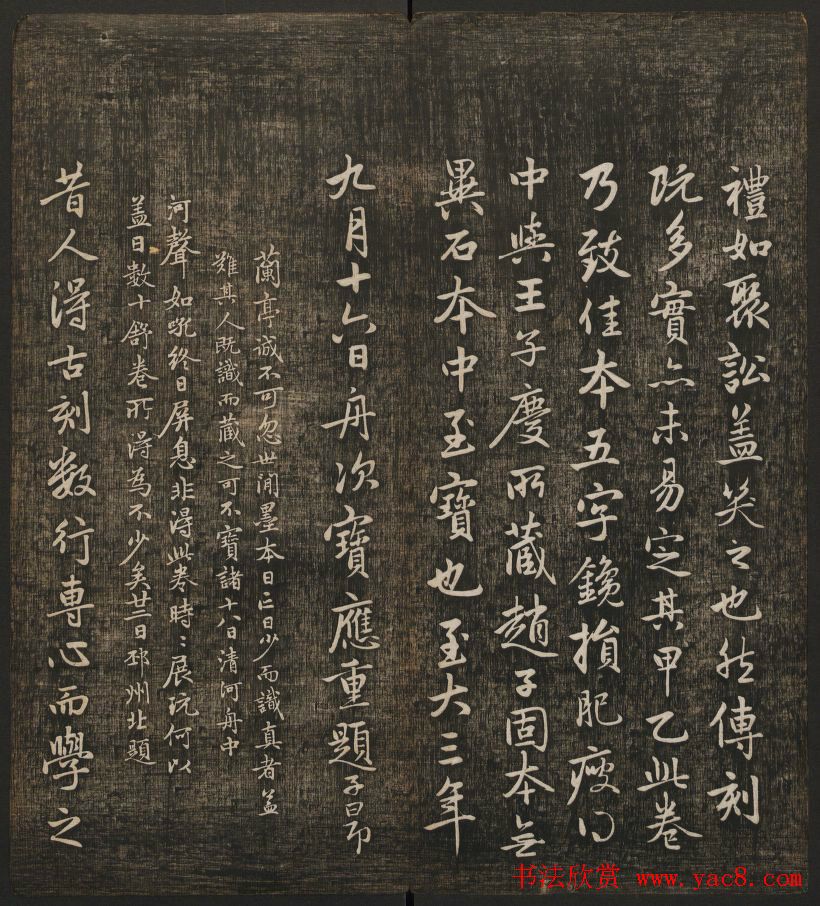 禮如聚訟蓋笑之也然傳刻
既多實亦未易定其甲乙此卷
乃致佳本五字鑱損肥瘦得
中與王子慶所藏趙子固本無
異石本中至寶也至大三年
九月十六日舟次寶應重題子昂
蘭亭誠不可忽世間墨本日亡日少而識真者蓋
難其人既識而藏之可不寶諸十八日清河舟中
河聲如吼終日屏息非得此卷時〻展玩何以
蓋日數十舒卷所得為不少矣廿二日邳州北題
昔人得古刻數行專心而學之
书法欣赏 www.yac8.com